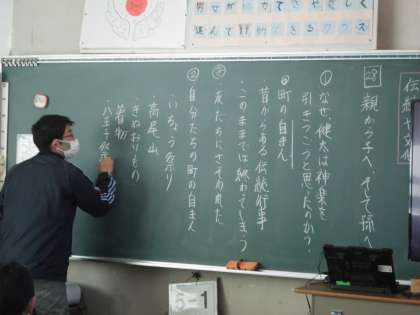 男女が協力できてやさしく
進んで行動できるクラス
28 親から子へ、そして孫へ
① なぜ、健太は神楽を
引きつごうと思ったのか?
◎町の自まん
昔からある伝統行事
・このままでは終わってしまう
・友だちにさそわれた
② 自分たちの町の自まん
・いちょう祭り
高尾山
・きぬおりもの
着物
・八王子祭
5-1